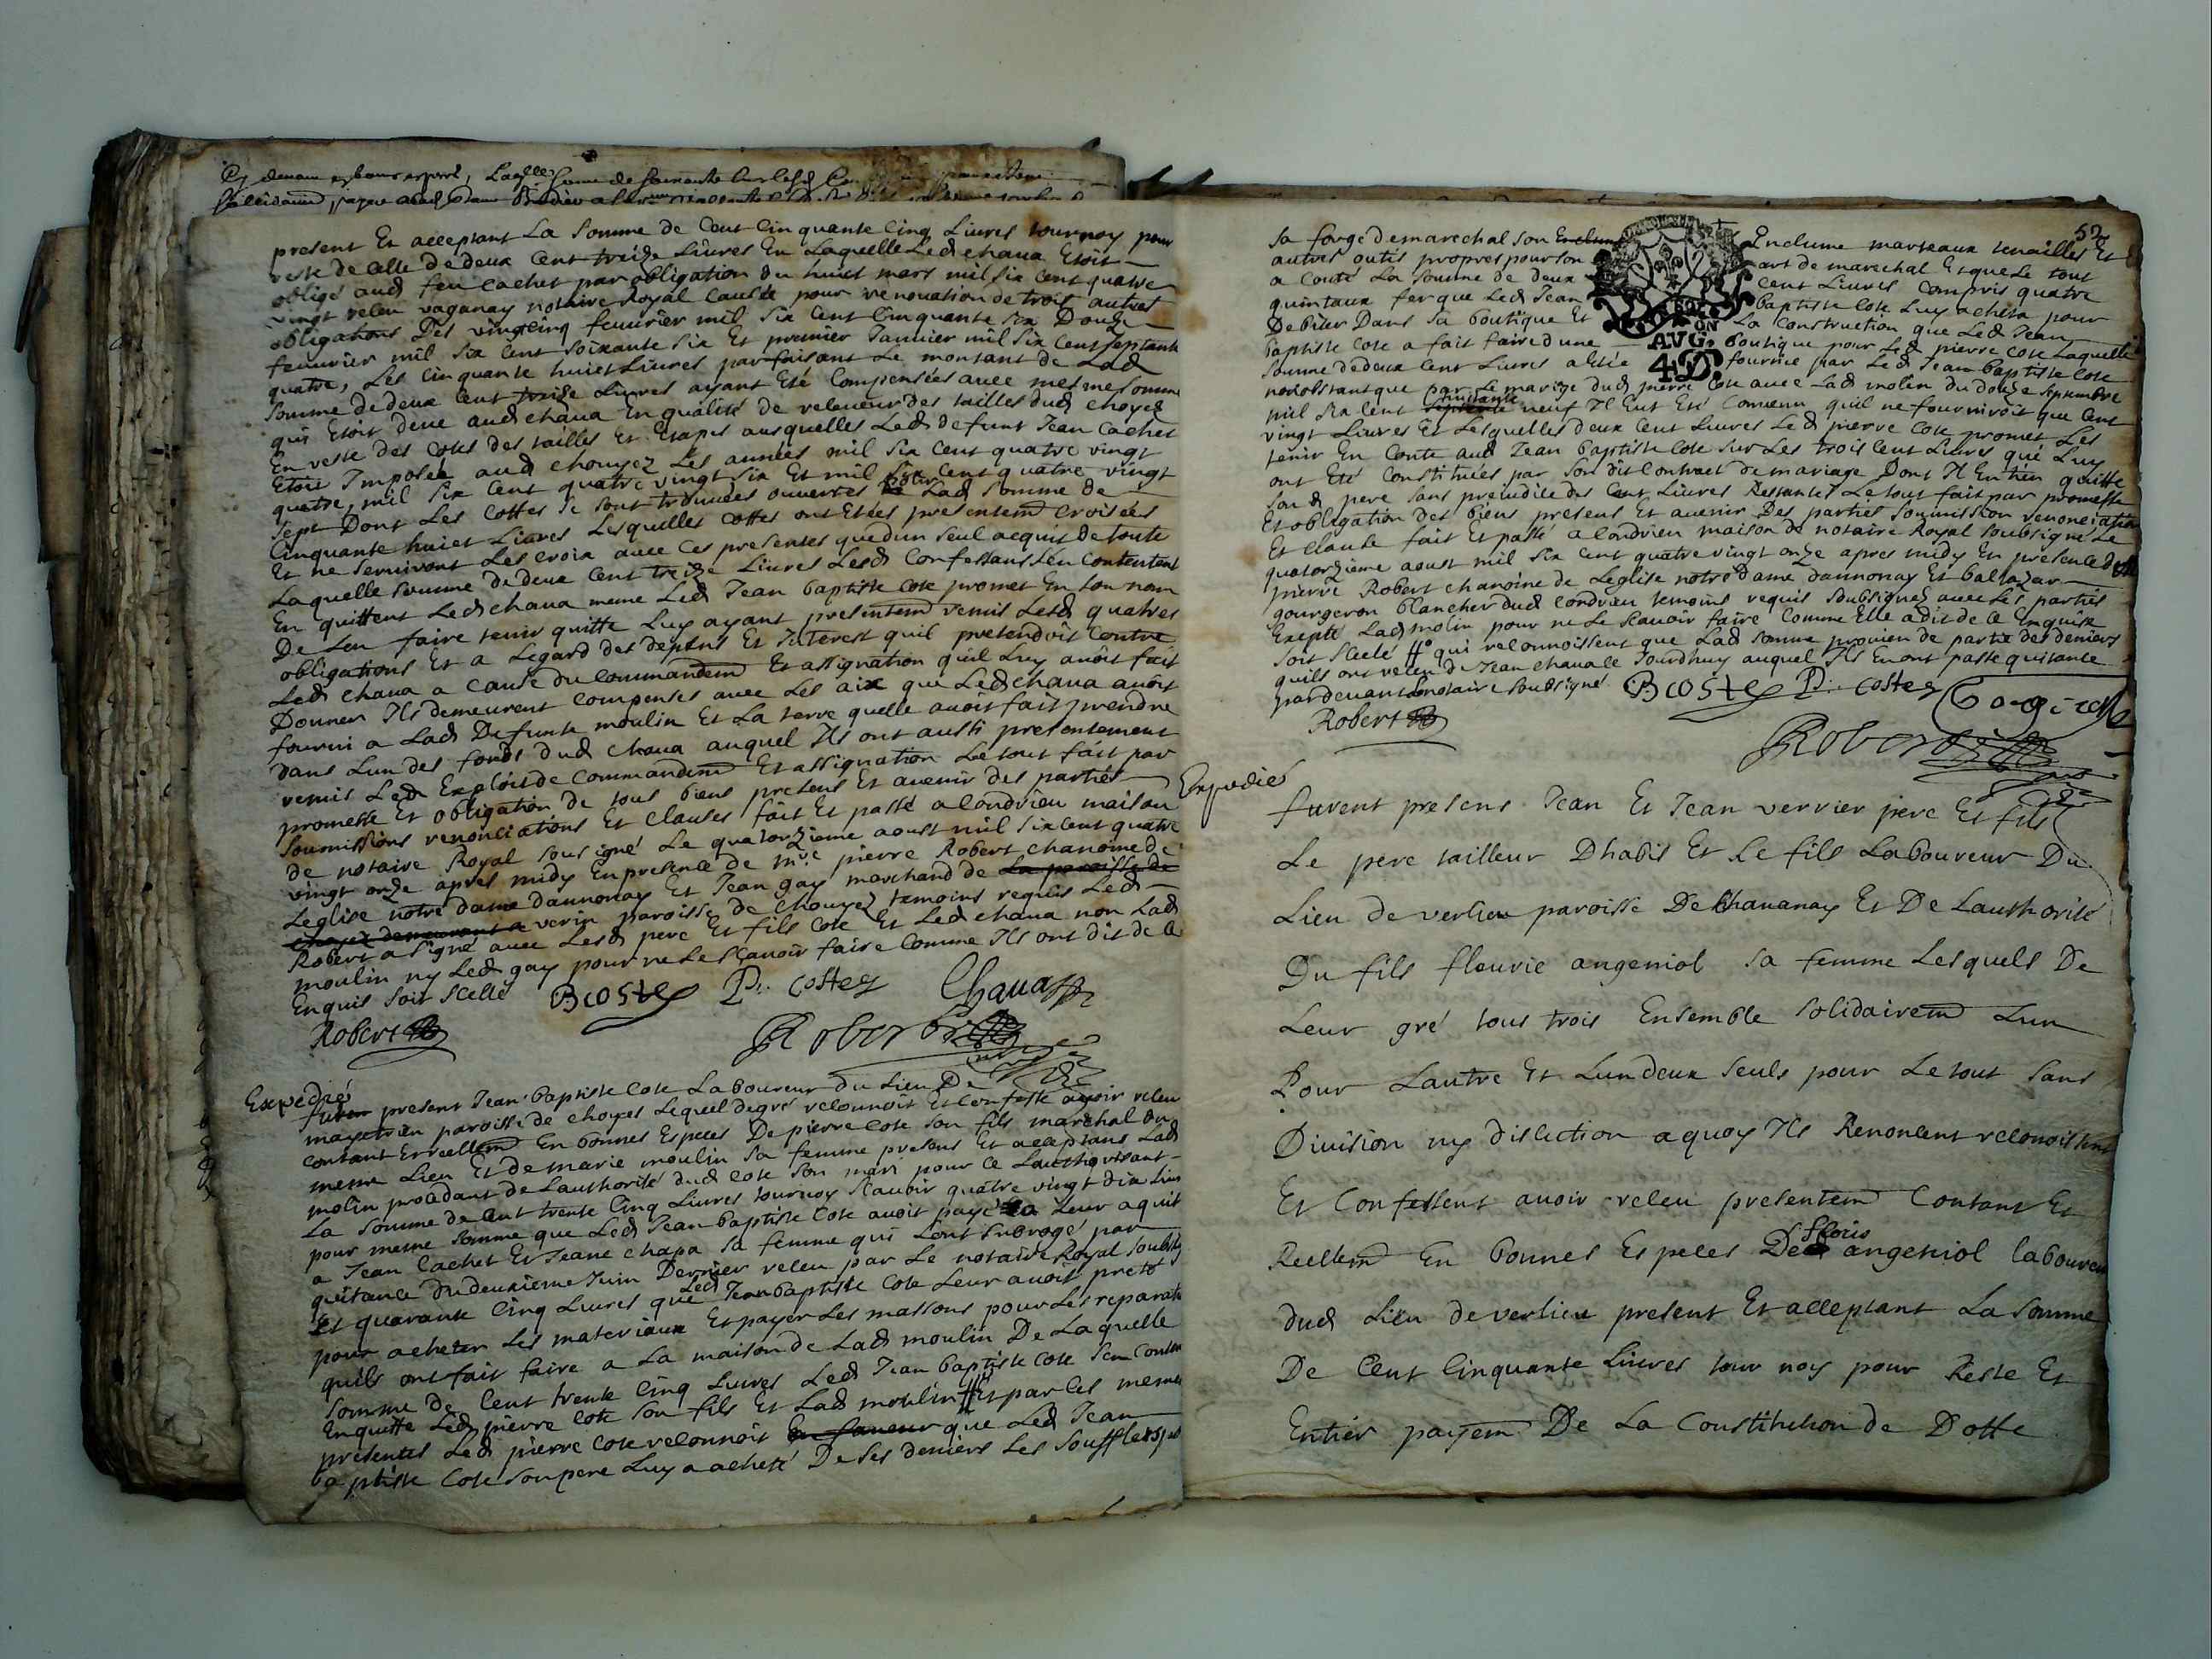 present Et acceptant La Somme de Cent Cinquante Cinq Livres tournoy pour
reste de Celle de deux Cent treize Livres En Laquelle Led chava Etoit
obligé aud feu Cachet par obligation du huict mars mil six Cent quatre
vingt receu vaganay notaire Royal Causée pour renouation de trois autres
obligations Des vingtcinq feuurier mil six Cent Cinquante six Douze
feuurier mil six Cent soixante six Et premier Januier mil six Cent septante
quatre, Les Cinquante huict Livres parfaisant Le montant de Lad
somme de deux Cent treize Livres ayant Eté Compensées auec mesme somme
qui Etoit deue aud chava En qualité de releueur des tailles dud choyez
En reste des Cotes des tailles Et Etapes ausquelles Led defunt Jean Cachet
Etoit Imposée aud chouyez Les années mil six Cent quatre vingt
quatre, mil six Cent quatre vingt six Et mil six Cent quatre vingt
sept Dont Les Cottes se sont trouuées ouuertes pour Lad somme de
Cinquante huict Livres Lesquelles Cottes ont Etées presentem Croisées
Et ne seruiront Les Croix auec Ces presentes que dun seul acquis De toute
Laquelle somme de deux Cent treize Livres Lesd Confessans sen Contentent
En quittent Led chava meme Led Jean baptiste Cote promet En son nom
De Len faire tenir quitte Luy ayant presentem remis Lesd quatres
obligations Et a Legard des depens Et Interest quil pretendoit Contre
Led chava a Cause du Commandem Et assignation quil Luy auoit fait
Donner Ils demeurent Compensés auec Les aix que Led chava auoit
fourni a Lad Defunte moulin Et La terre quelle auoit fait prendre
dans Lun des fonds dud chava auquel Ils ont aussi presentement
remis Led Exploit de Commandem Et assignation Le tout fait par
promesse Et obligation de tous biens presens Et auenir des parties
soumissions renonciations Et Clauses fait Et passé a Condrieu maison
de notaire Royal sousigné Le quatorzieme aoust mil six Cent quatre
vingt onze apres midy En presence de mre pierre Robert chanoine de
Leglise notre dame dannonay Et Jean gay marchand de La paroisse de
choyez demeurant a verin paroisse de Chouyez temoins requis Led
Robert a signé auec Lesd pere Et fils Cote Et Led chava non Lad
moulin ny Led gay pour ne Le sçauoir faire Comme Ils ont dit de Ce
Enquis soit scellé
BCoste P. Costes Chava
Robert
Robert
Expedié
fut present Jean baptiste Cote Laboureur du Lieu De
paroisse de choyes Lequel de gré reconnoit Et Confesse auoir receu
Contant Et reellem En bonnes Especes De pierre Cote son fils marechal du
meme Lieu Et de marie moulin sa femme presens Et acceptans Lad
molin procedant de Lauthorité dud Cote son mari pour Ce Lauthorisant
La somme de Cent trente Cinq Livres tournoy scauoir quatre vingt dix Livres
pour meme somme que Led Jean baptiste Cote auoit payé a Leur aquit
a Jean Cachet Et Jeane chapa sa femme qui Lont subrogé par
quitance du deuxieme Juin Dernier receu par Le notaire Royal soubsig
Et quarante Cinq Livres que Led Jean baptiste Cote Leur auoit preté
pour acheter Les materiaux Et payer Les massons pour Les reparati
quils ont fait faire a La maison de Lad moulin De Laquelle
somme de Cent trente Cinq Livres Led Jean baptiste Cote sen Conten
En quitte Led pierre Cote son fils Et Lad moulin Et par Ces memes
presentes Led pierre Cote reconnoit En faueur que Led Jean
baptiste Cote son pere Luy a acheté De ses deniers Les souffles po
52
sa forge de marechal son Enclume Enclume marteaux tenailles Et
autres outis propres pour son art de marechal Et que Le tout
a Couté La somme de deux Cent Livres Compris quatre
quintaux fer que Led Jean baptiste Cote Luy acheta pour
Debiter Dans sa boutique Et La Construction que Led Jean
AVG.
baptiste Cote a fait faire d une boutique pour Led pierre Cote Laquelle
4 D.
somme de deux Cent Livres a Etée fournie par Led Jean baptiste Cote
nonobstant que par Le mariage dud pierre Cote auec Lad molin du Douze septembre
mil six Cent huitante neuf Il Eut Eté Conuenu quil ne fourniroit que Cent
vingt Livres Et Lesquelles deux Cent Livres Led pierre Cote promet Les
tenir En Conte aud Jean baptiste Cote sur Les trois Cent Livres que Luy
ont Eté Constituées par son dit Contract de mariage Dont Il En tien quitte
sond pere sans prejudice des Cent Livres Restantes Le tout fait par promesse
Et obligation des biens present Et auenir Des parties soumission renonciation
Et Clause fait Et passé a Condrieu maison de notaire Royal soubsigné Le
quatorzieme aoust mil six Cent quatre vingt onze apres midy En presence de
pierre Robert chanoine de Leglise notre dame dannonay Et baltazar
gourgeron blancher dud Condrieu temoins requis soubsignez auec Les parties
Excepté Lad molin pour ne Le scauoir faire Comme Elle a dit de Ce Enquise
soit scelé qui reconnoissent que Lad somme prouien de partie des deniers
quils ont receu de Jean chaua Ce Jourdhuy auquel Ils En ont passé quitance
pardeuant notaire soubsigné
BCoste P. Costes
Robert
Robert
Expedié
furent presens Jean Et Jean verrier pere Et fils
Le pere tailleur Dhabis Et Le fils Laboureur Du
Lieu de verlieu paroisse De Chauanay Et De Lauthorité
Du fils fleurie angeniol sa femme Lesquels De
Leur gré tous trois Ensemble solidairem Lun
Pour Lautre Et Lun deux seuls pour Le tout sans
Diuision ny discution a quoy Ils Renoncent reconoissent
Et Confessent auoir receu presentem Contant Et
Reellem En bonnes Especes De flouis angeniol laboureu
dud Lieu de verlieu present Et acceptant La somme
De Cent Cinquante Livres tour noy pour Reste Et
Entier payem De La Constitution de Dotte